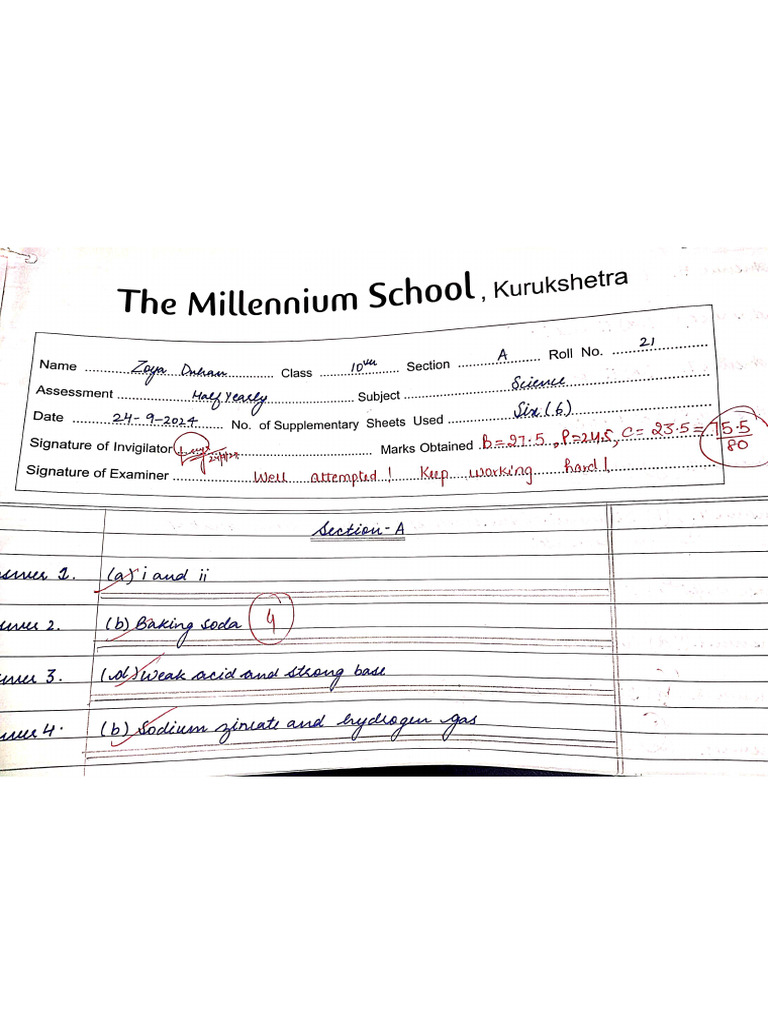 The Millennium School, Kurukshetra
Name Zoya Class 10th Section A Roll No. 21
Assessment Half Yearly Subject Science
Date 24-9-2024 No. of Supplementary Sheets Used Six (6)
Signature of Invigilator Marks Obtained B = 27.5, P = 24.5, C = 23.5 = 75.5/80
Signature of Examiner Well attempted! Keep working hard!
Section-A
swer 1. (a) i and ii
swer 2. (b) Baking soda 4
swer 3. (d) Weak acid and strong base
swer 4. (b) Sodium zincate and hydrogen gas